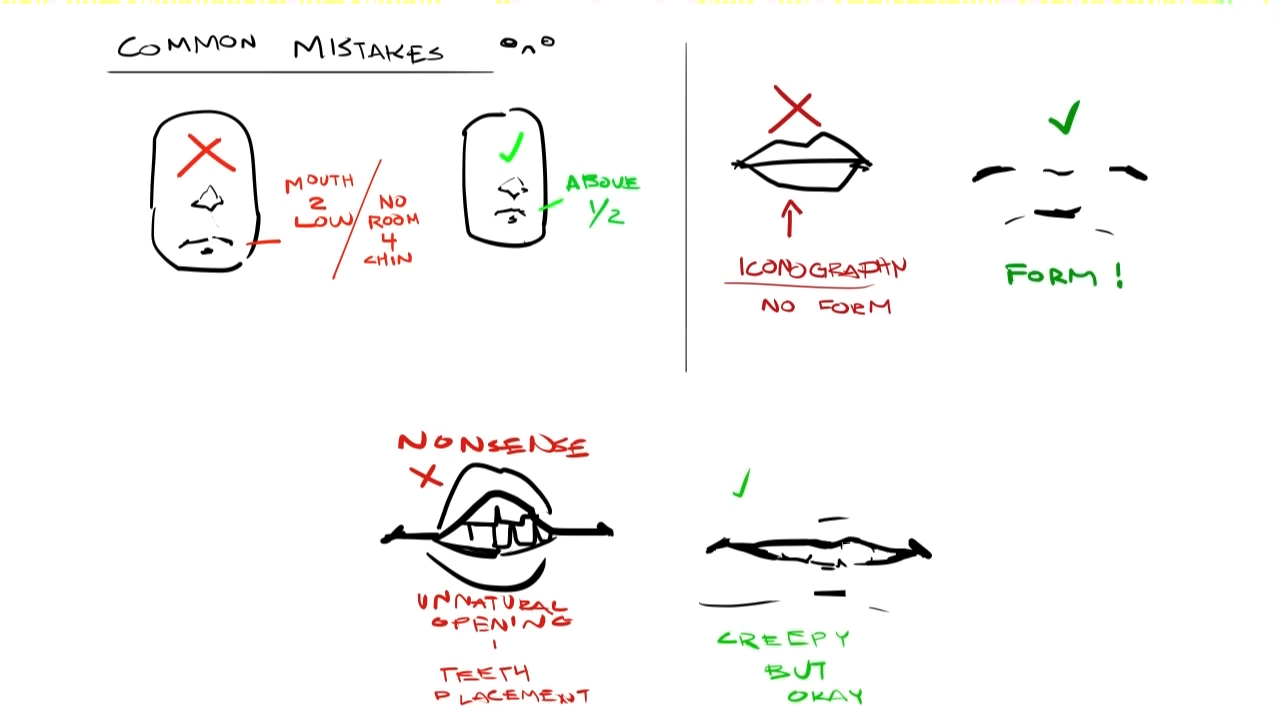 COMMON MISTAKES
MOUTH
2
LOW
NO
ROOM
4
CHIN
ABOVE
1/2
ICONOGRAPHY
NO FORM
FORM!
NONSENSE
UNNATURAL
OPENING
+
TEETH
PLACEMENT
CREEPY
BUT
OKAY